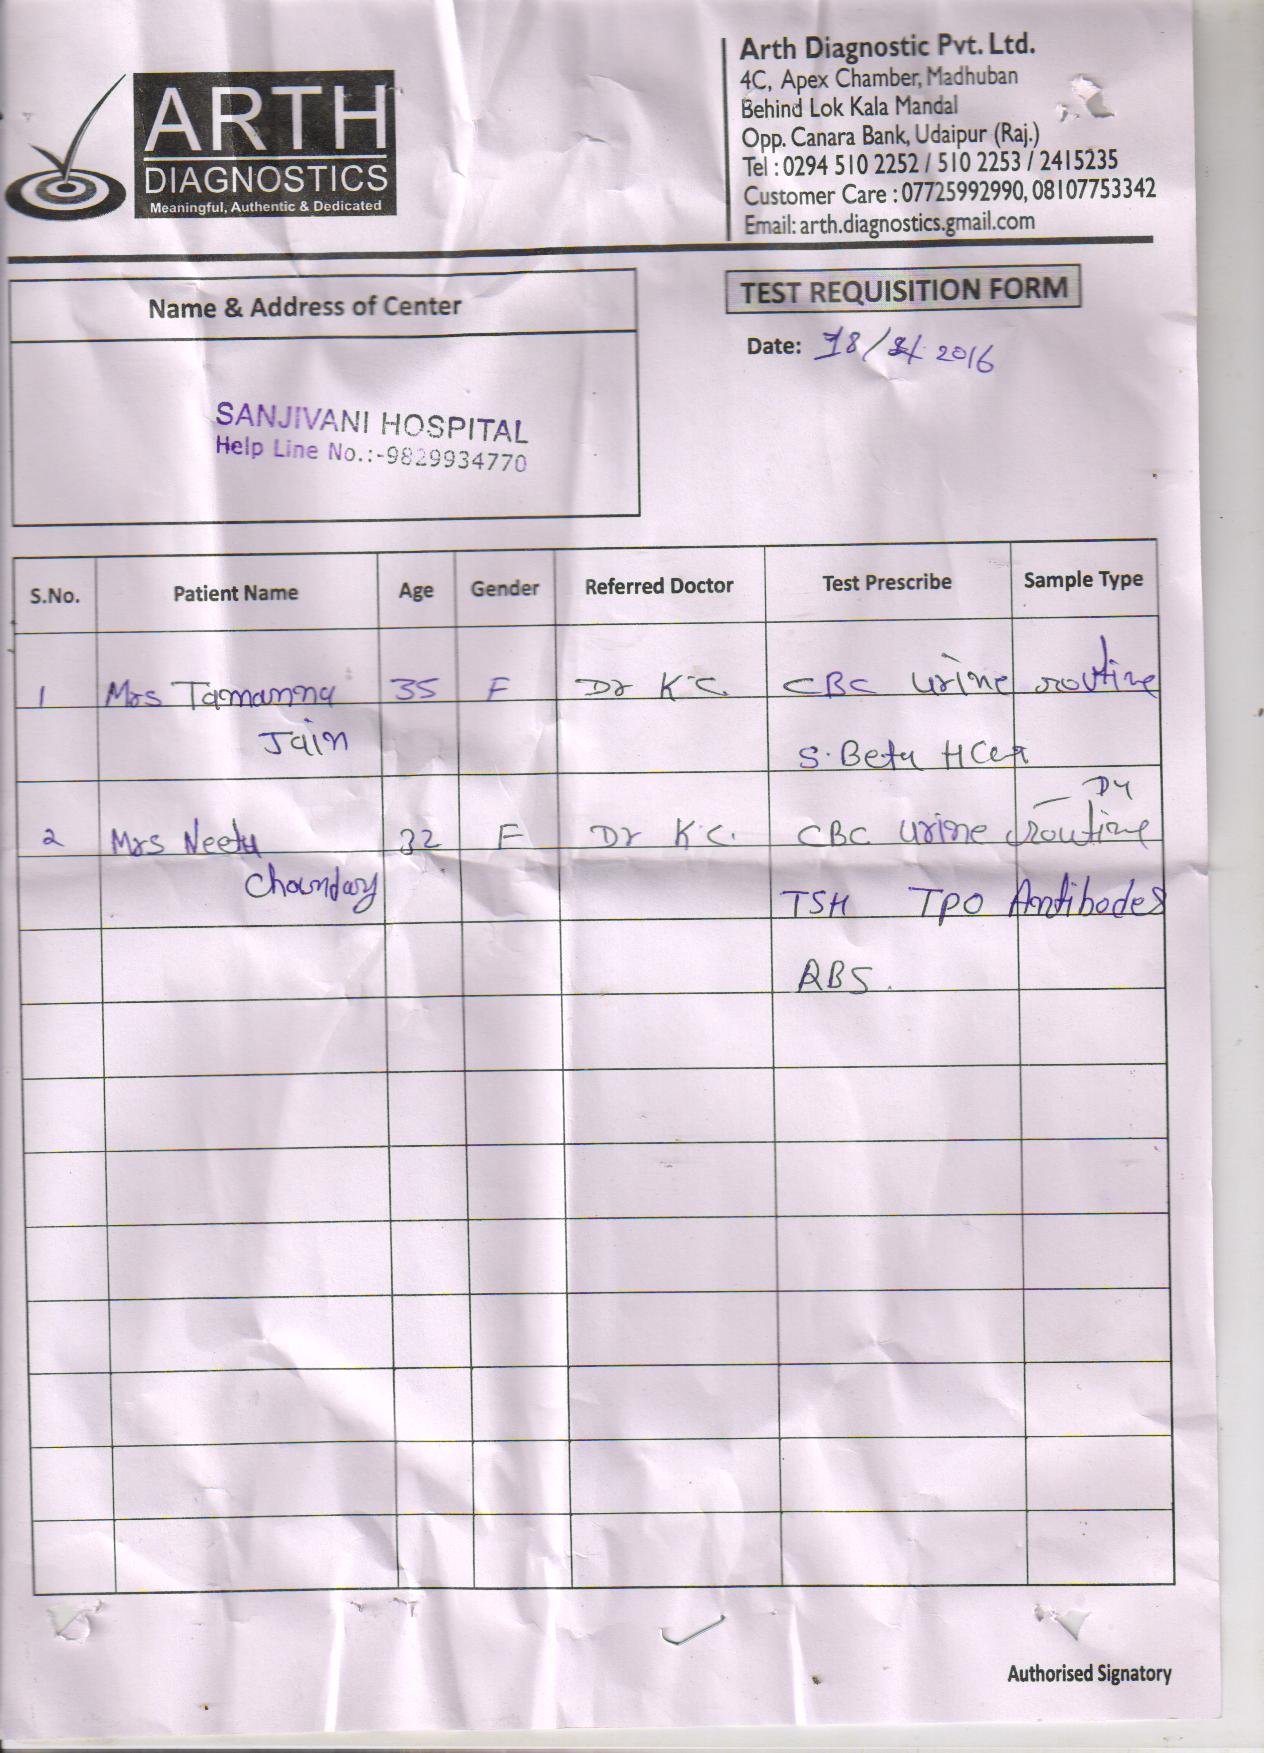 ARTH
DIAGNOSTICS
Meaningful, Authentic & Dedicated
Arth Diagnostic Pvt. Ltd.
4C, Apex Chamber, Madhuban
Behind Lok Kala Mandal
Opp. Canara Bank, Udaipur (Raj.)
Tel : 0294 510 2252 / 510 2253 / 2415235
Customer Care : 07725992990, 08107753342
Email: arth.diagnostics.gmail.com
Name & Address of Center
TEST REQUISITION FORM
Date: 18/ 2016
SANJIVANI HOSPITAL
Help Line No.:-9829934770
S.No. Patient Name Age Gender Referred Doctor Test Prescribe Sample Type
1 Mrs Tamanna 35 F Dr K.C. CBC urine routine
Jain S. Beta HCG
2 Mrs Neetu 32 F Dr K.C. CBC urine routine
Choundary TSH TPO Antibodes
RBS.
Authorised Signatory